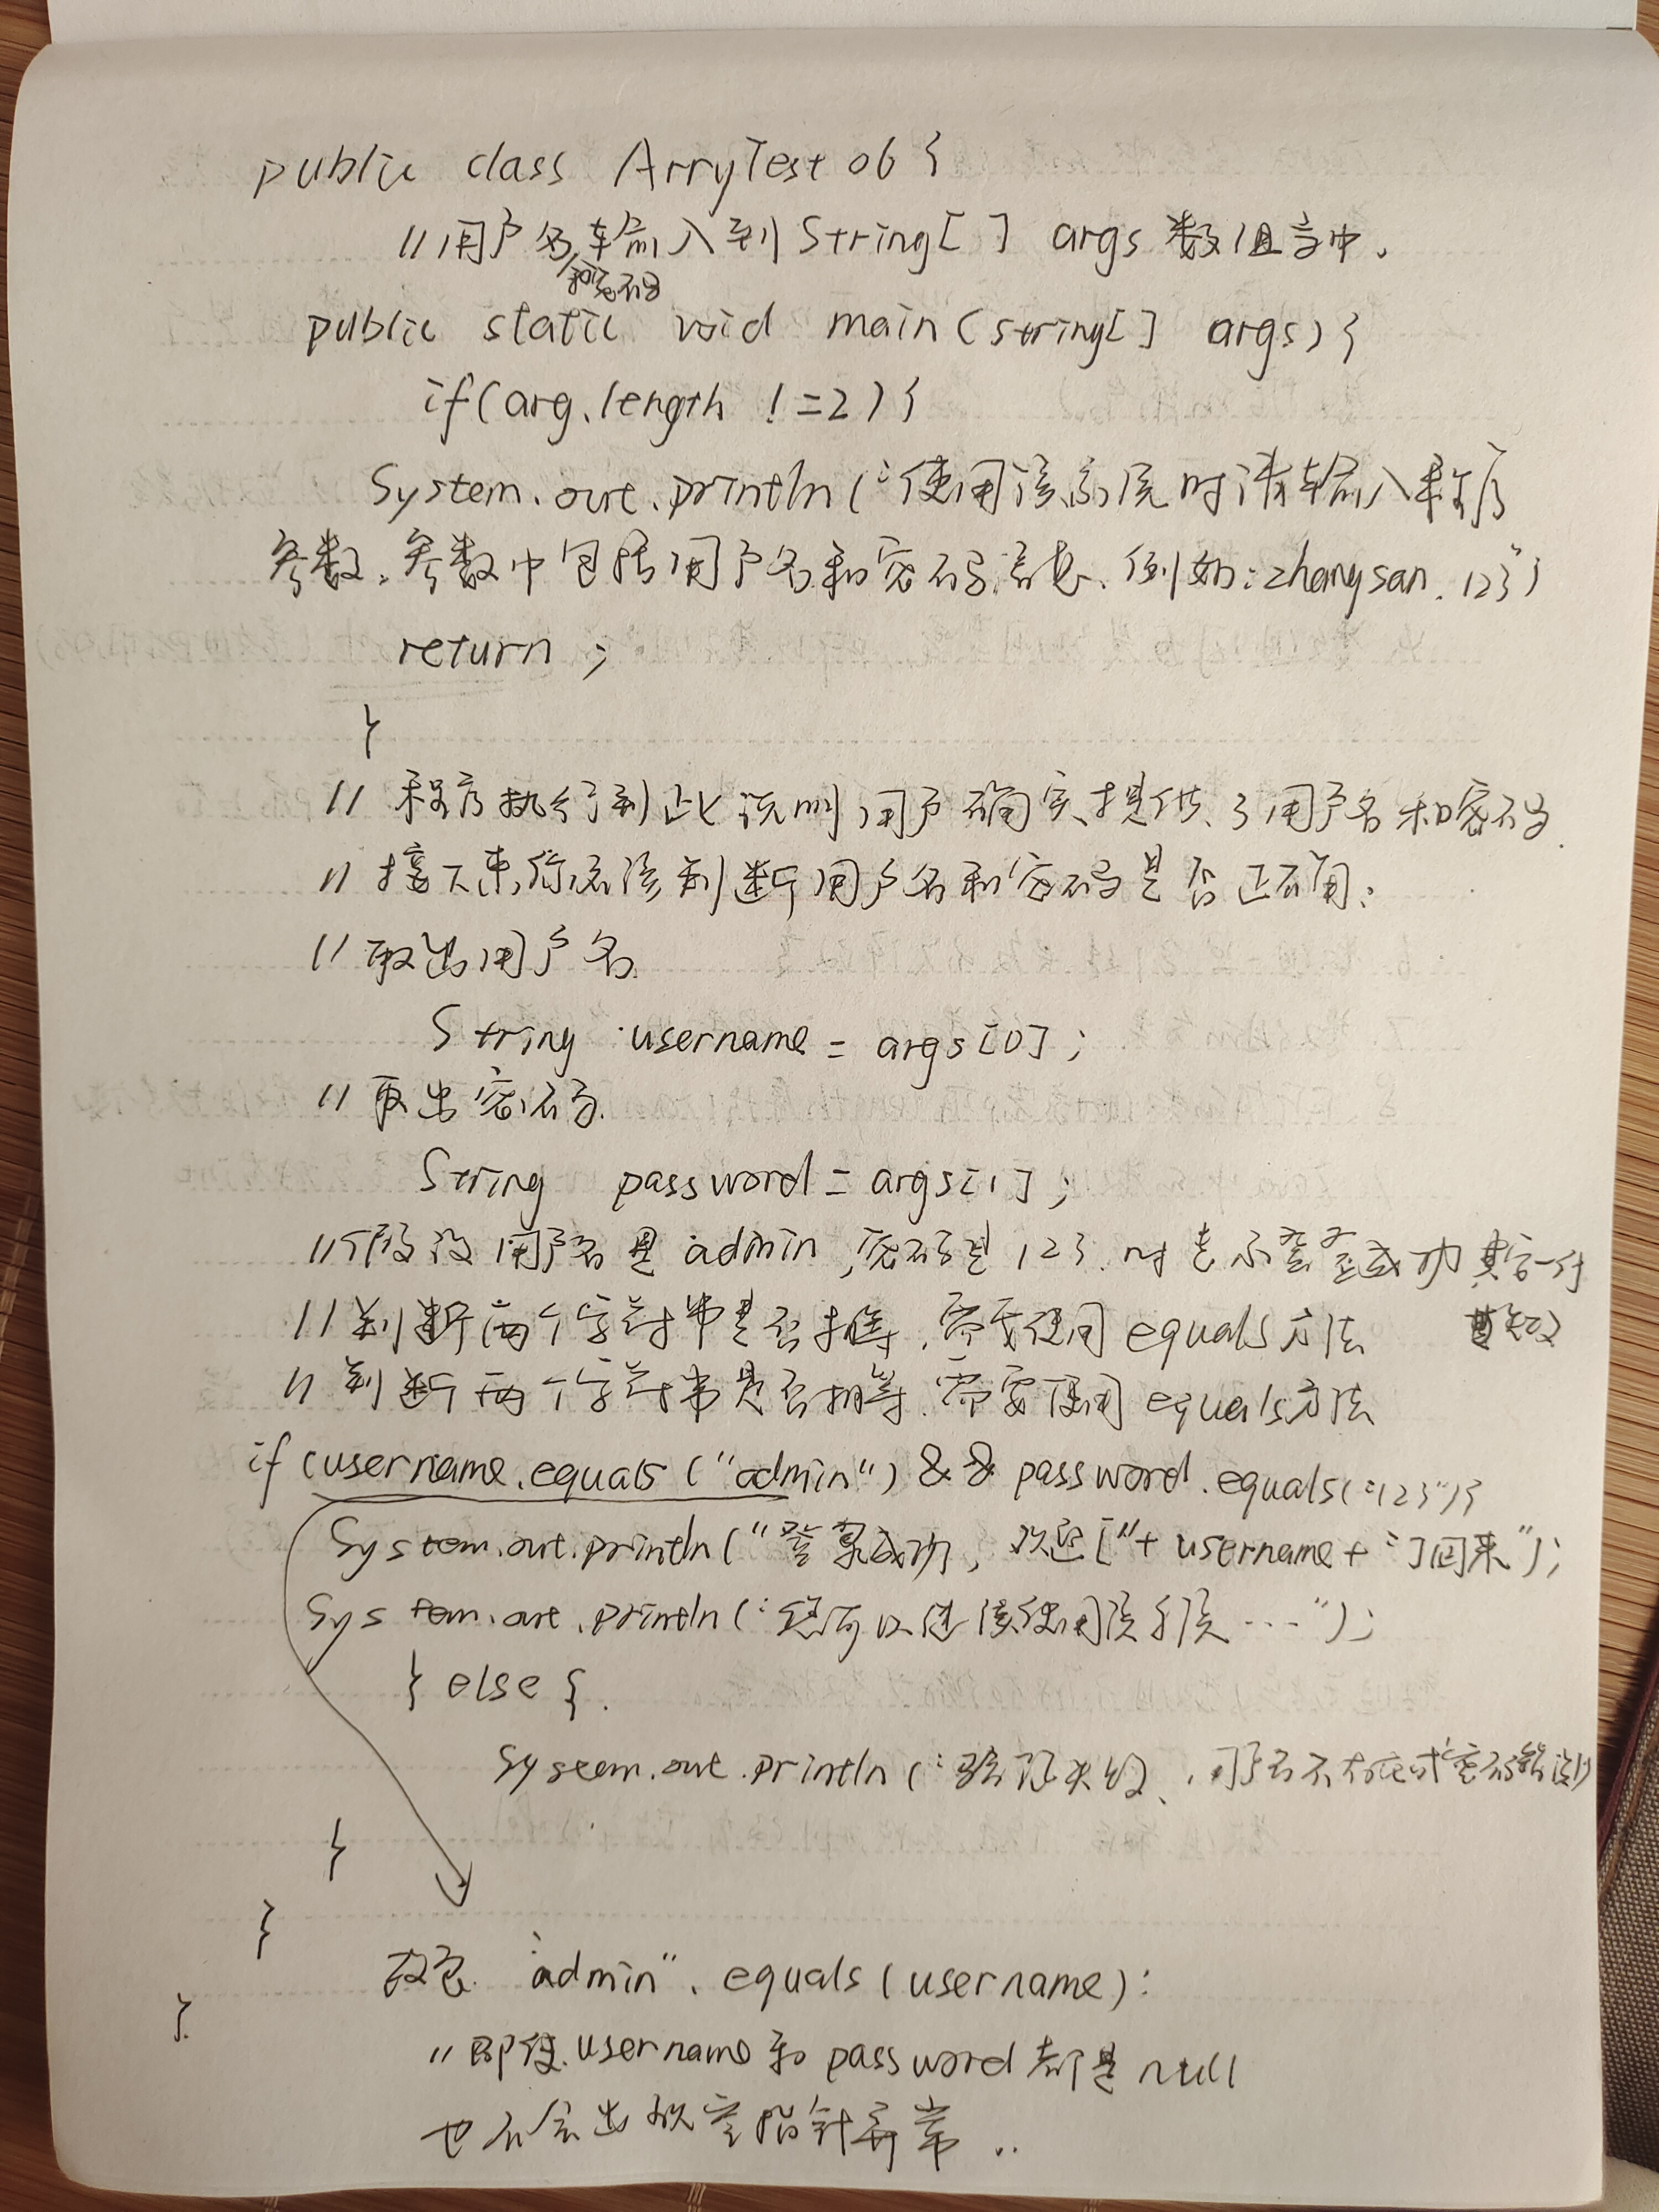 public class ArryTest06 {
//用户名输入到String[ ] args 数组当中.
和密码
public static void main(string[] args) {
if(arg.length !=2) {
System.out.println("使用该系统时请输入程序
参数。参数中包括用户名和密码信息、例如:zhangsan. 123")
return ;
}
// 程序执行到此说明用户确实提供了用户名和密码.
// 接下来你应该判断用户名和密码是否正确:
// 取出用户名.
String username = args[0];
// 取出密码.
String password = args[1];
//假设用户名是 admin,密码是 123.时表示登录成功 其它一律
失败
// 判断两个字符串是否相等.需要使用 equals方法
// 判断两个字符串是否相等.需要使用 equals方法
if (username.equals("admin") && password.equals("123")){
System.out.println("登录成功,欢迎["+ username+"]回来");
System.out.println("您可以继续使用该系统…");
} else {.
System.out.println("验证失败、用户名不存在或密码错误
}
}
}
改它 "admin".equals(username):
"即使.username和password都是null
也不会出现空指针异常..